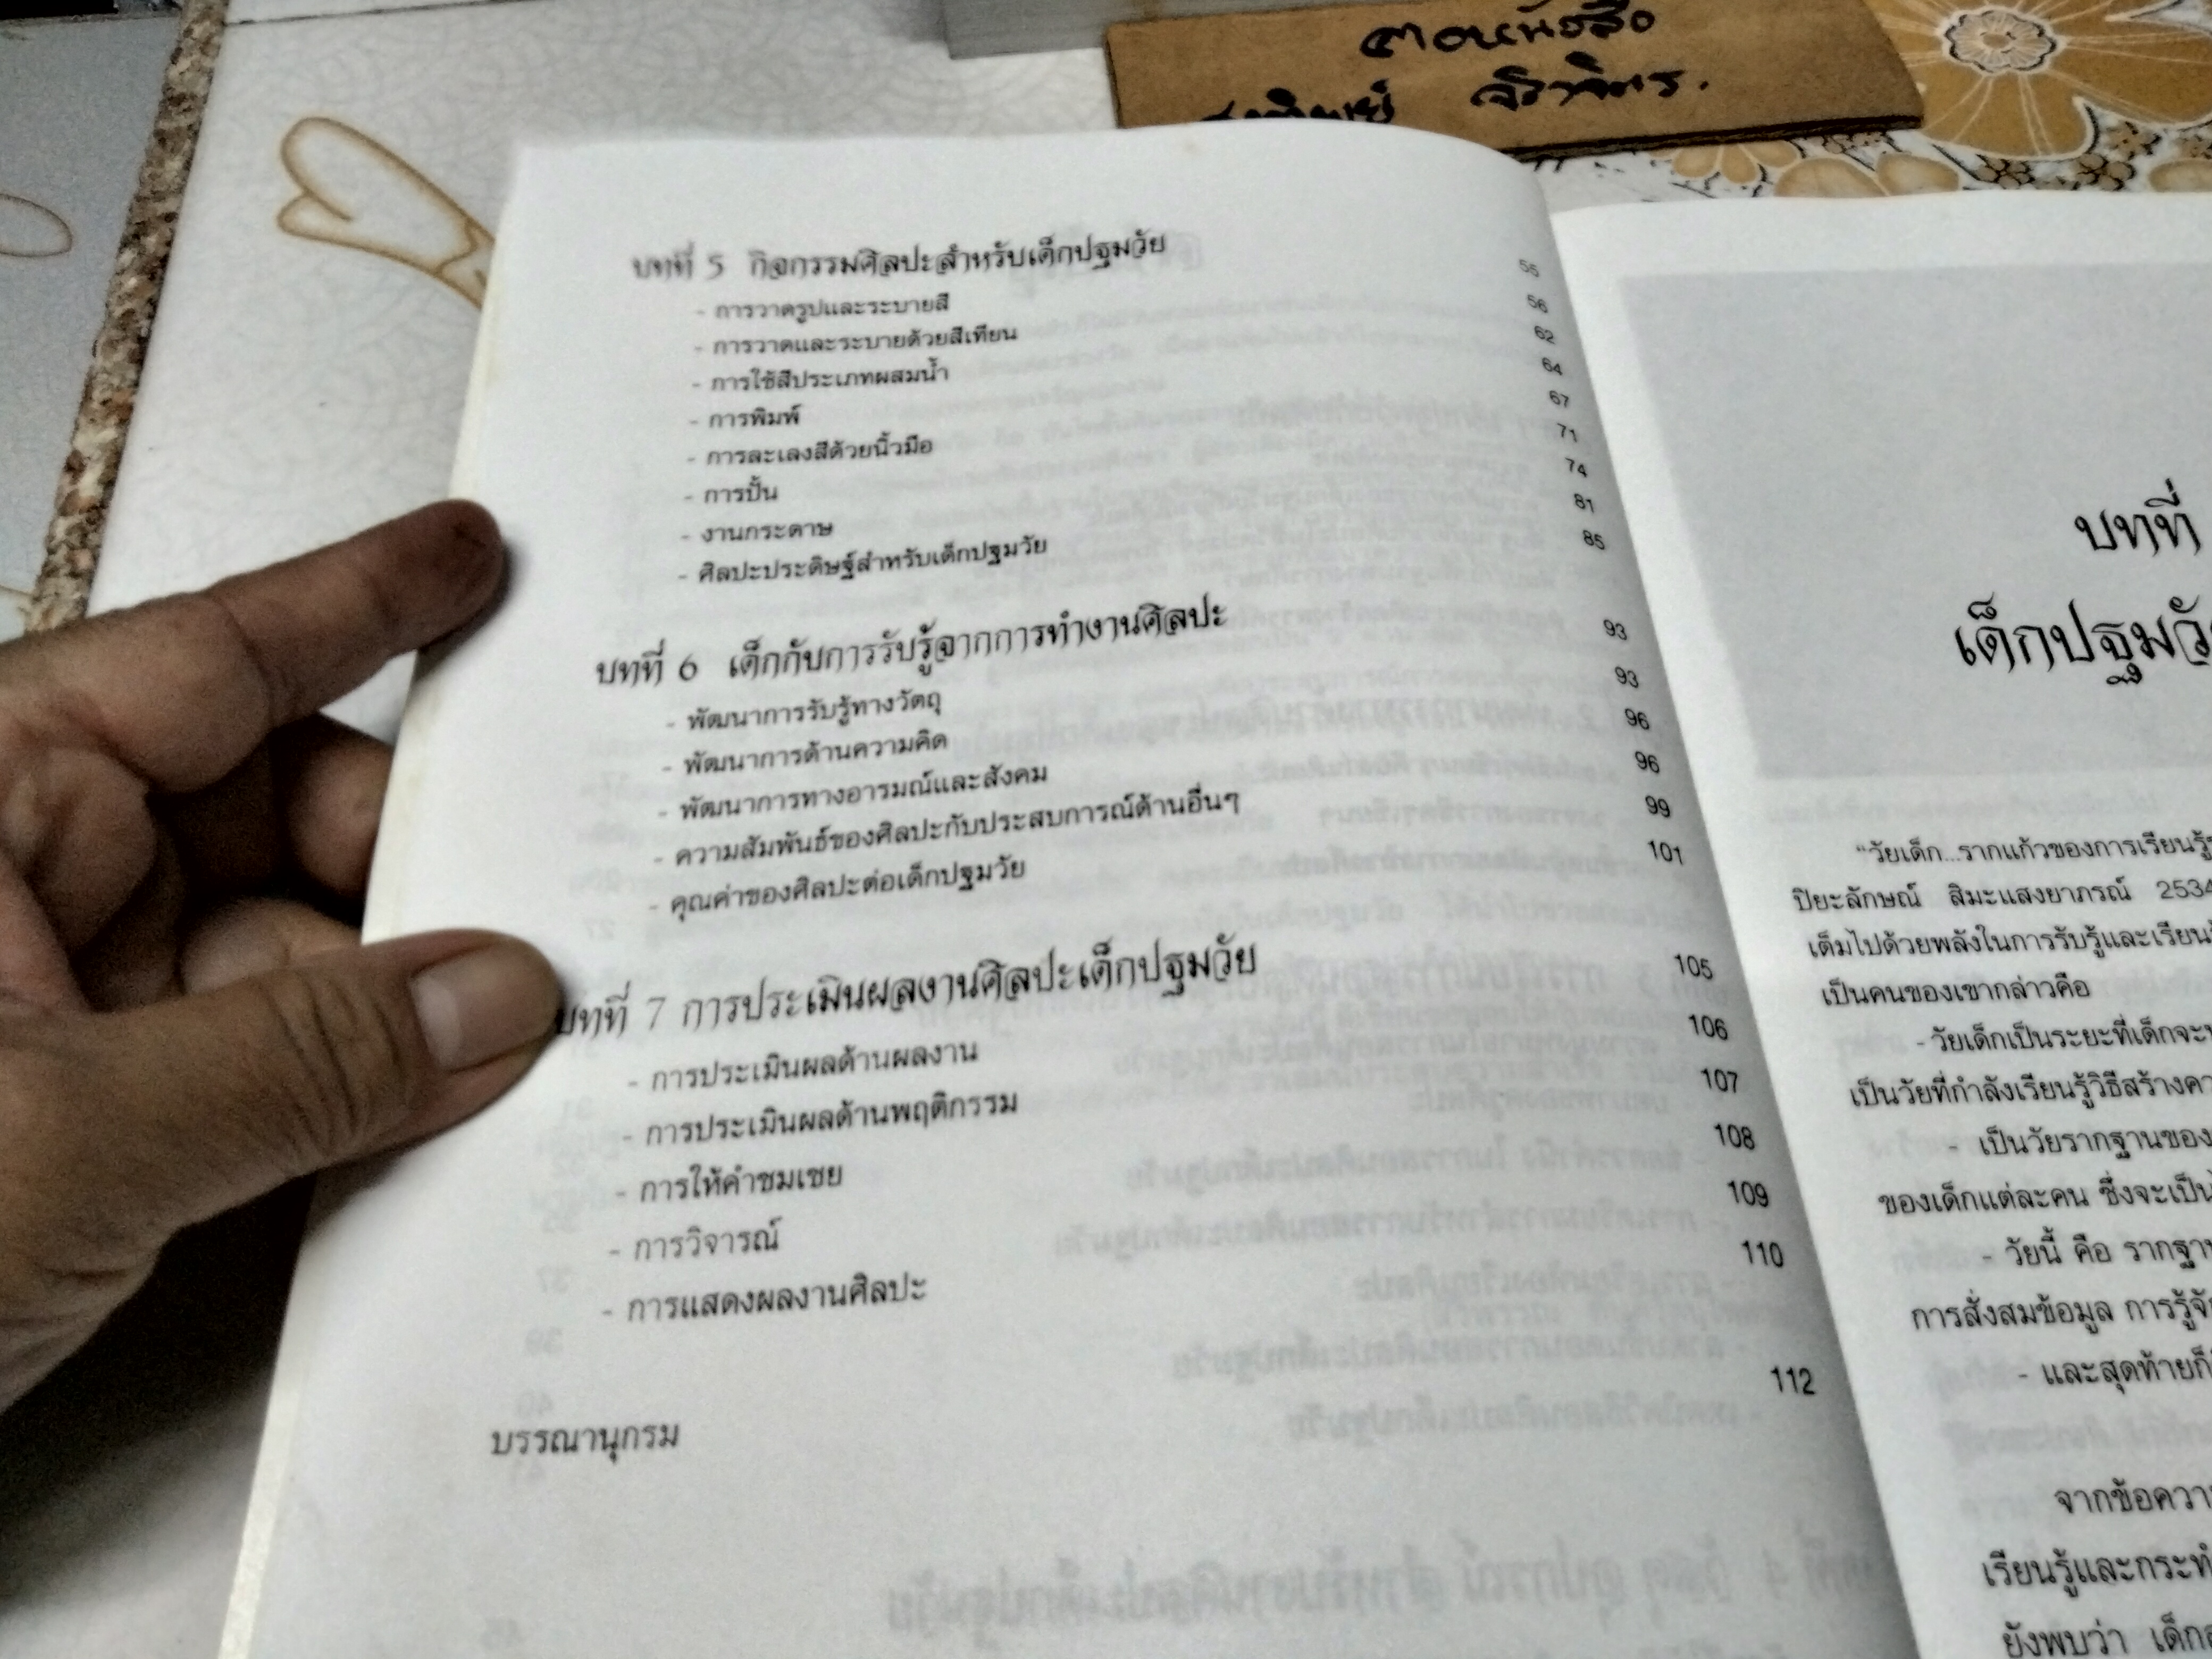 ตอนหนังสือ
บทที่ 5 กิจกรรมศิลปะสำหรับเด็กปฐมวัย 55
- การวาดรูปและระบายสี 56
- การวาดและระบายด้วยสีเทียน 62
- การใช้สีประเภทผสมน้ำ 64
- การพิมพ์ 67
- การละเลงสีด้วยนิ้วมือ 71
- การปั้น 74
- งานกระดาษ 81
- ศิลปะประดิษฐ์สำหรับเด็กปฐมวัย 85
บทที่ 6 เด็กกับการรับรู้จากการทำงานศิลปะ 93
- พัฒนาการรับรู้ทางวัตถุ 93
- พัฒนาการด้านความคิด 96
- พัฒนาการทางอารมณ์และสังคม 96
- ความสัมพันธ์ของศิลปะกับประสบการณ์ด้านอื่นๆ 99
- คุณค่าของศิลปะต่อเด็กปฐมวัย 101
บทที่ 7 การประเมินผลงานศิลปะเด็กปฐมวัย 105
- การประเมินผลด้านผลงาน 106
- การประเมินผลด้านพฤติกรรม 107
- การให้คำชมเชย 108
- การวิจารณ์ 109
- การแสดงผลงานศิลปะ 110
บรรณานุกรม 112
บทที่
เด็กปฐมวั
“วัยเด็ก...รากแก้วของการเรียนรู้
ปิยะลักษณ์ สิมะแสงยาภรณ์ 2534
เต็มไปด้วยพลังในการรับรู้และเรียนรู้
เป็นคนของเขากล่าวคือ
- วัยเด็กเป็นระยะที่เด็กจะ
เป็นวัยที่กำลังเรียนรู้วิธีสร้างคว
- เป็นวัยรากฐานของ
ของเด็กแต่ละคน ซึ่งจะเป็น
- วัยนี้ คือ รากฐาน
การสั่งสมข้อมูล การรู้จั
- และสุดท้ายก็
จากข้อควา
เรียนรู้และกระทำ
ยังพบว่า เด็ก